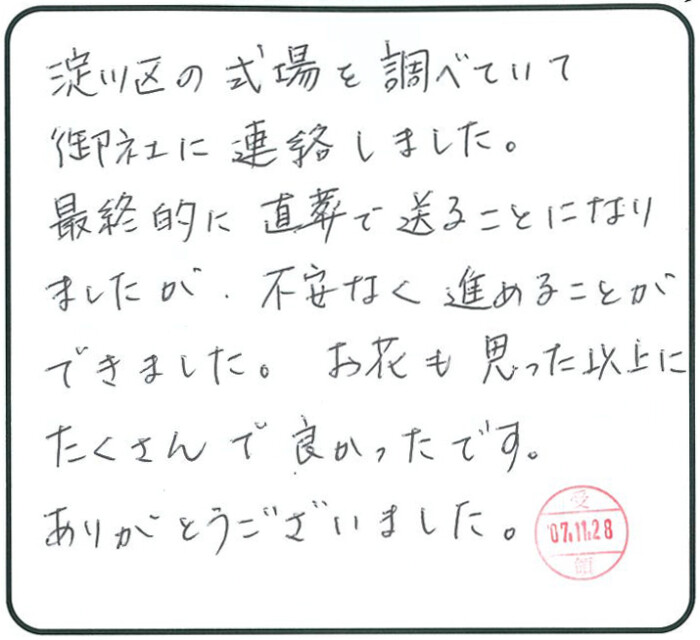 淀川区の式場を調べていて
御社に連絡しました。
最終的に直葬で送ることになり
ましたが、不安なく進めることが
できました。お花も思った以上に
たくさんで良かったです。
ありがとうございました。
受
'07.11.28
領